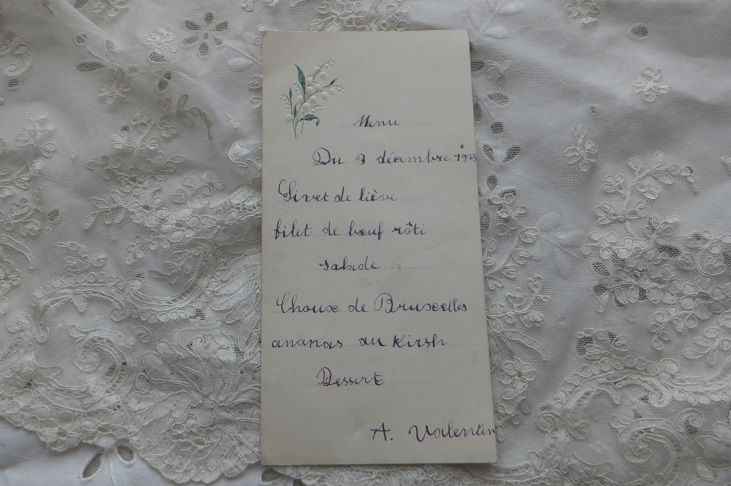 Menu
Du 3 décembre
Sivet de lièvre
filet de bœuf rôti
salade
Choux de Bruxelles
ananas au Kirsh
Dessert
A. Valentin